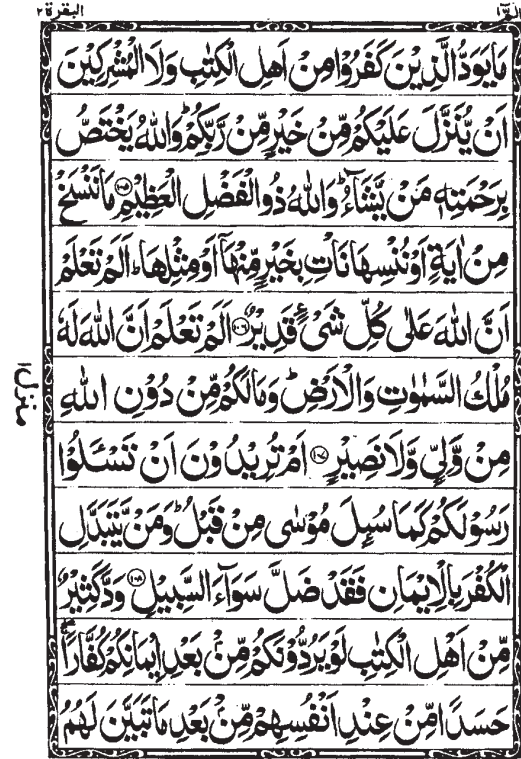 الٓمّٓ ١ البقرة ٢
مَا يَوَدُّ الَّذِيْنَ كَفَرُوْا مِنْ اَهْلِ الْكِتٰبِ وَلَا الْمُشْرِكِيْنَ
اَنْ يُّنَزَّلَ عَلَيْكُمْ مِّنْ خَيْرٍ مِّنْ رَّبِّكُمْ ؕ وَاللّٰهُ يَخْتَصُّ
بِرَحْمَتِهٖ مَنْ يَّشَآءُ ؕ وَاللّٰهُ ذُو الْفَضْلِ الْعَظِيْمِ ﴿١٠٥﴾ مَا نَنْسَخْ
مِنْ اٰيَةٍ اَوْ نُنْسِهَا نَاْتِ بِخَيْرٍ مِّنْهَاۤ اَوْ مِثْلِهَا ؕ اَلَمْ تَعْلَمْ
اَنَّ اللّٰهَ عَلٰى كُلِّ شَىْءٍ قَدِيْرٌ ﴿١٠٦﴾ اَلَمْ تَعْلَمْ اَنَّ اللّٰهَ لَهٗ
مُلْكُ السَّمٰوٰتِ وَالْاَرْضِ ؕ وَمَا لَكُمْ مِّنْ دُوْنِ اللّٰهِ
مِنْ وَّلِيٍّ وَّلَا نَصِيْرٍ ﴿١٠٧﴾ اَمْ تُرِيْدُوْنَ اَنْ تَسْـَٔلُوْا
رَسُوْلَكُمْ كَمَا سُىِٕلَ مُوْسٰى مِنْ قَبْلُ ؕ وَمَنْ يَّتَبَدَّلِ
الْكُفْرَ بِالْاِيْمَانِ فَقَدْ ضَلَّ سَوَآءَ السَّبِيْلِ ﴿١٠٨﴾ وَدَّ كَثِيْرٌ
مِّنْ اَهْلِ الْكِتٰبِ لَوْ يَرُدُّوْنَكُمْ مِّنْۢ بَعْدِ اِيْمَانِكُمْ كُفَّارًا ۖۚ
حَسَدًا مِّنْ عِنْدِ اَنْفُسِهِمْ مِّنْۢ بَعْدِ مَا تَبَيَّنَ لَهُمُ
منزل ١